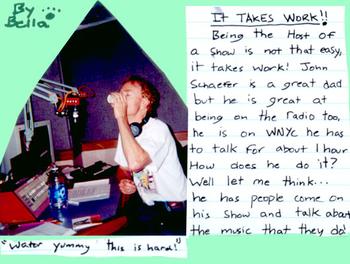 By
Bella
IT TAKES WORK!!
Being the Host of
a Show is not that easy,
it takes work! John
Schaefer is a great dad
but he is great at
being on the radio too,
he is on WNYC he has
to talk for about 1 hour
How does he do it?
Well let me think...
he has people come on
his Show and talk about
the music that they do!
"Water yummy this is hard!"